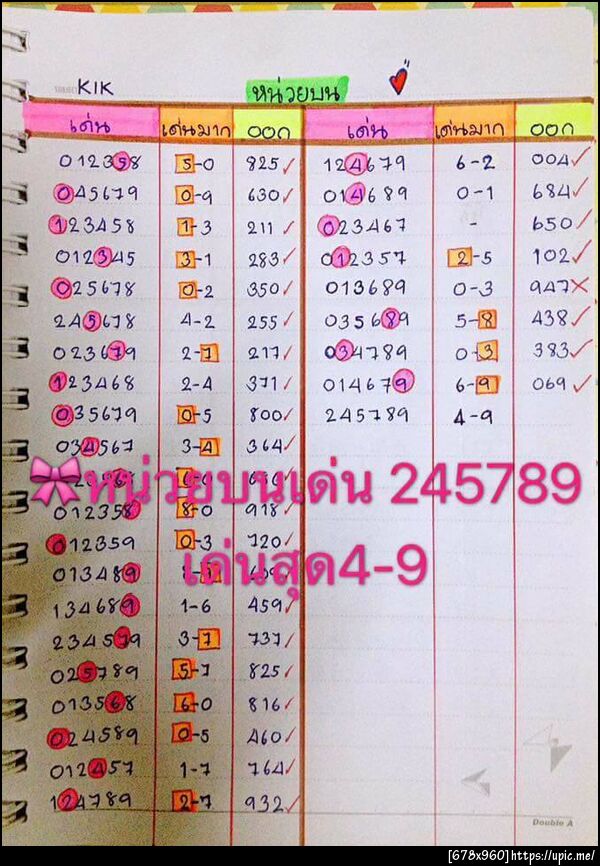 KIK
หน่วยบน
เด่น เด่นมาก ออก เด่น เด่นมาก ออก
012358 5-0 825✓ 124679 6-2 004✓
045679 0-9 630✓ 014689 0-1 684✓
123458 1-3 211✓ 023467 - 650✓
012345 3-1 283✓ 012357 2-5 102✓
025678 0-2 350✓ 013689 0-3 947×
245678 4-2 255✓ 035689 5-8 438✓
023679 2-7 217✓ 034789 0-3 383✓
123468 2-4 371✓ 014679 6-9 069✓
035679 0-5 800✓ 245789 4-9
034567 3-4 364✓
🎀หน่วยบนเด่น 245789
012358 8-0 918✓
012359 0-3 720✓
เด่นสุด4-9
013489
134689 1-6 459✓
234579 3-7 737✓
025789 5-7 825✓
013568 6-0 816✓
024589 0-5 460✓
012457 1-7 764✓
124789 2-7 932✓
Double A
[678x960]https://upic.me/